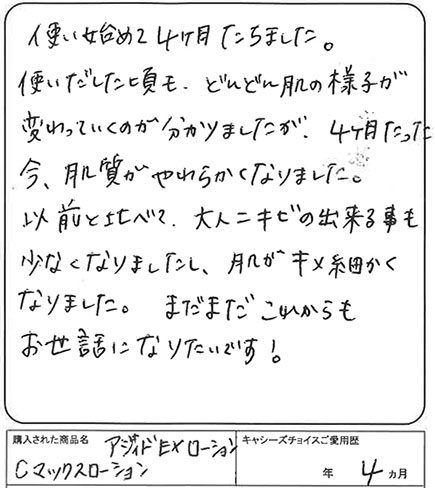 使い始めて4ヶ月たちました。
使いだした頃も、どんどん肌の様子が
変わっていくのが分かりましたが、4ヶ月たった
今、肌質がやわらかくなりました。
以前と比べて、大人ニキビの出来る事も
少なくなりましたし、肌がキメ細かく
なりました。 まだまだこれからも
お世話になりたいです!
購入された商品名 アジャイドEXローション キャシーズチョイスご愛用歴
Cマックスローション 年 4 ヵ月